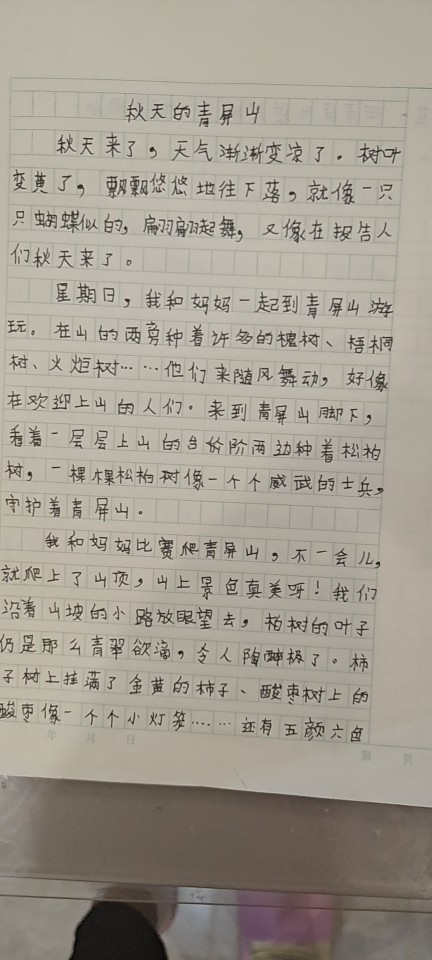 秋天的青屏山
秋天来了，天气渐渐变凉了。树叶
变黄了，飘飘悠悠地往下落，就像一只
只蝴蝶似的，翩翩起舞，又像在报告人
们秋天来了。
星期日，我和妈妈一起到青屏山游
玩。在山的两旁种着许多的槐树、梧桐
树、火炬树……他们来随风舞动，好像
在欢迎上山的人们。来到青屏山脚下，
看着一层层上山的台阶两边种着松柏
树，一棵棵松柏树像一个个威武的士兵，
守护着青屏山。
我和妈妈比赛爬青屏山，不一会儿，
就爬上了山顶，山上景色真美呀！我们
沿着山坡的小路放眼望去，柏树的叶子
仍是那么青翠欲滴，令人陶醉极了。柿
子树上挂满了金黄的柿子、酸枣树上的
酸枣像一个个小灯笼……还有五颜六色
年 月 日
第 页